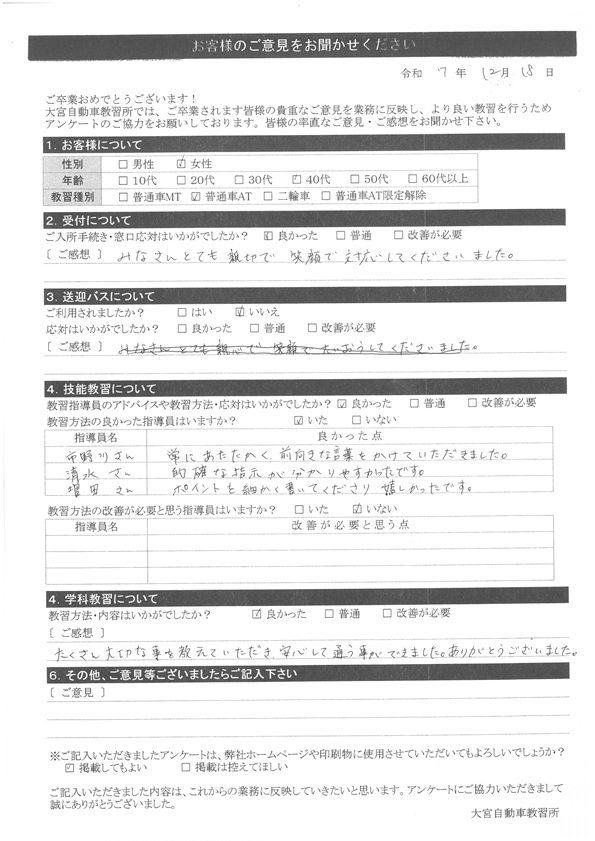 お客様のご意見をお聞かせください
令和 7 年 12月 18 日
ご卒業おめでとうございます！
大宮自動車教習所では、ご卒業されます皆様の貴重なご意見を業務に反映し、より良い教習を行うため
アンケートのご協力をお願いしております。皆様の率直なご意見・ご感想をお聞かせ下さい。
1. お客様について
性別 □ 男性 ☑ 女性
年齢 □ 10代 □ 20代 □ 30代 ☑ 40代 □ 50代 □ 60代以上
教習種別 □ 普通車MT ☑ 普通車AT □ 二輪車 □ 普通車AT限定解除
2. 受付について
ご入所手続き・窓口応対はいかがでしたか？ ☑ 良かった □ 普通 □ 改善が必要
［ ご感想 ］ みなさんとても親切で 笑顔で対応してくださいました。
3. 送迎バスについて
ご利用されましたか？ □ はい ☑ いいえ
応対はいかがでしたか？ □ 良かった □ 普通 □ 改善が必要
［ ご感想 ］ みなさんとても親切で 笑顔でたいおうしてくださいました。
4. 技能教習について
教習指導員のアドバイスや教習方法・応対はいかがでしたか？ ☑ 良かった □ 普通 □ 改善が必要
教習方法の良かった指導員はいますか？ ☑ いた □ いない
指導員名 良かった点
市野川さん 常にあたたかく、前向きな言葉をかけていただきました。
清水 さん 的確な指示が分かりやすかったです。
増田 さん ポイントを細かく書いてくださり 嬉しかったです。
教習方法の改善が必要と思う指導員はいますか？ □ いた ☑ いない
指導員名 改善が必要と思う点
4. 学科教習について
教習方法・内容はいかがでしたか？ ☑ 良かった □ 普通 □ 改善が必要
［ ご感想 ］
たくさん大切な事を教えていただき、安心して通う事ができました。ありがとうございました。
6. その他、ご意見等ございましたらご記入下さい
［ ご意見 ］
※ご記入いただきましたアンケートは、弊社ホームページや印刷物に使用させていただいてもよろしいでしょうか？
☑ 掲載してもよい □ 掲載は控えてほしい
ご記入いただきました内容は、これからの業務に反映していきたいと思います。アンケートにご協力いただきまして
誠にありがとうございました。
大宮自動車教習所